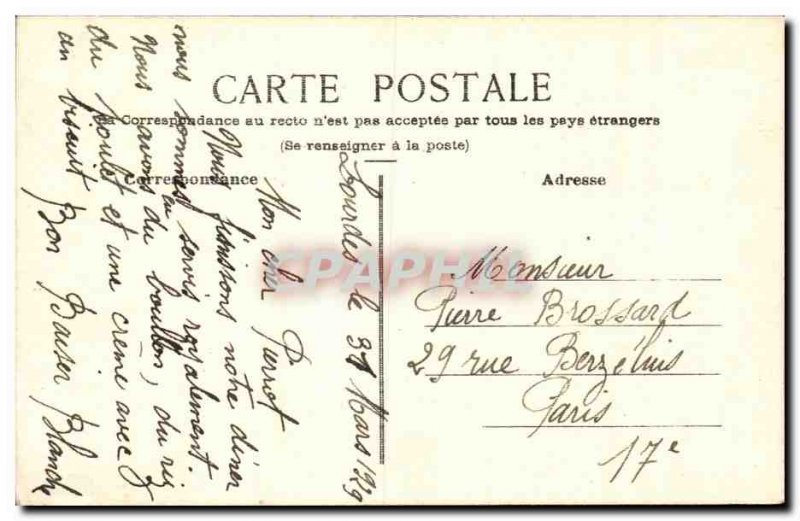 CARTE POSTALE
La Correspondance au recto n'est pas acceptée par tous les pays étrangers
(Se renseigner à la poste)
Correspondance
Adresse
Lourdes le 31 Mars 129
Mon cher Pierrot
Nous finissons notre diner
nous sommes servis royalement.
Nous avons eu du bouillon, du riz
du poulet et une crème avec
un biscuit Bon Baiser Blanche
Monsieur
Pierre Brossard
29 rue Berzélius
Paris
17e
CPAPHIL